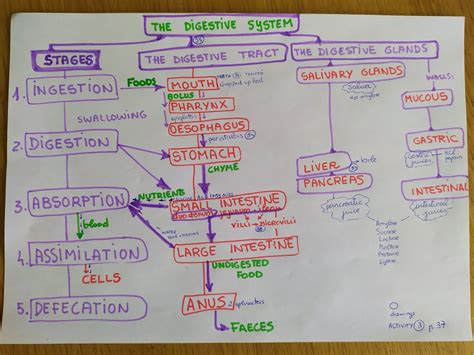 THE DIGESTIVE SYSTEM
STAGES
THE DIGESTIVE TRACT
THE DIGESTIVE GLANDS
1. INGESTION
FOODS
MOUTH
BOLUS
PHARYNX
epiglottis
OESOPHAGUS
SWALLOWING
peristaltis
2. DIGESTION
STOMACH
CHYME
SALIVARY GLANDS
Saliva
WALLS:
MUCOUS
GASTRIC
Gastric juice
LIVER
bile
PANCREAS
pancreatic juice
INTESTINAL
intestinal juice
Amylase
Sucrase
Lactase
Maltase
Protease
Lipase
3. ABSORPTION
NUTRIENTS
SMALL INTESTINE
duodenum jejunum ileum
VILLI MICROVILLI
blood
4. ASSIMILATION
CELLS
LARGE INTESTINE
UNDIGESTED FOOD
5. DEFECATION
ANUS
2 sphincters
FAECES
drawings
ACTIVITY 3 p. 37